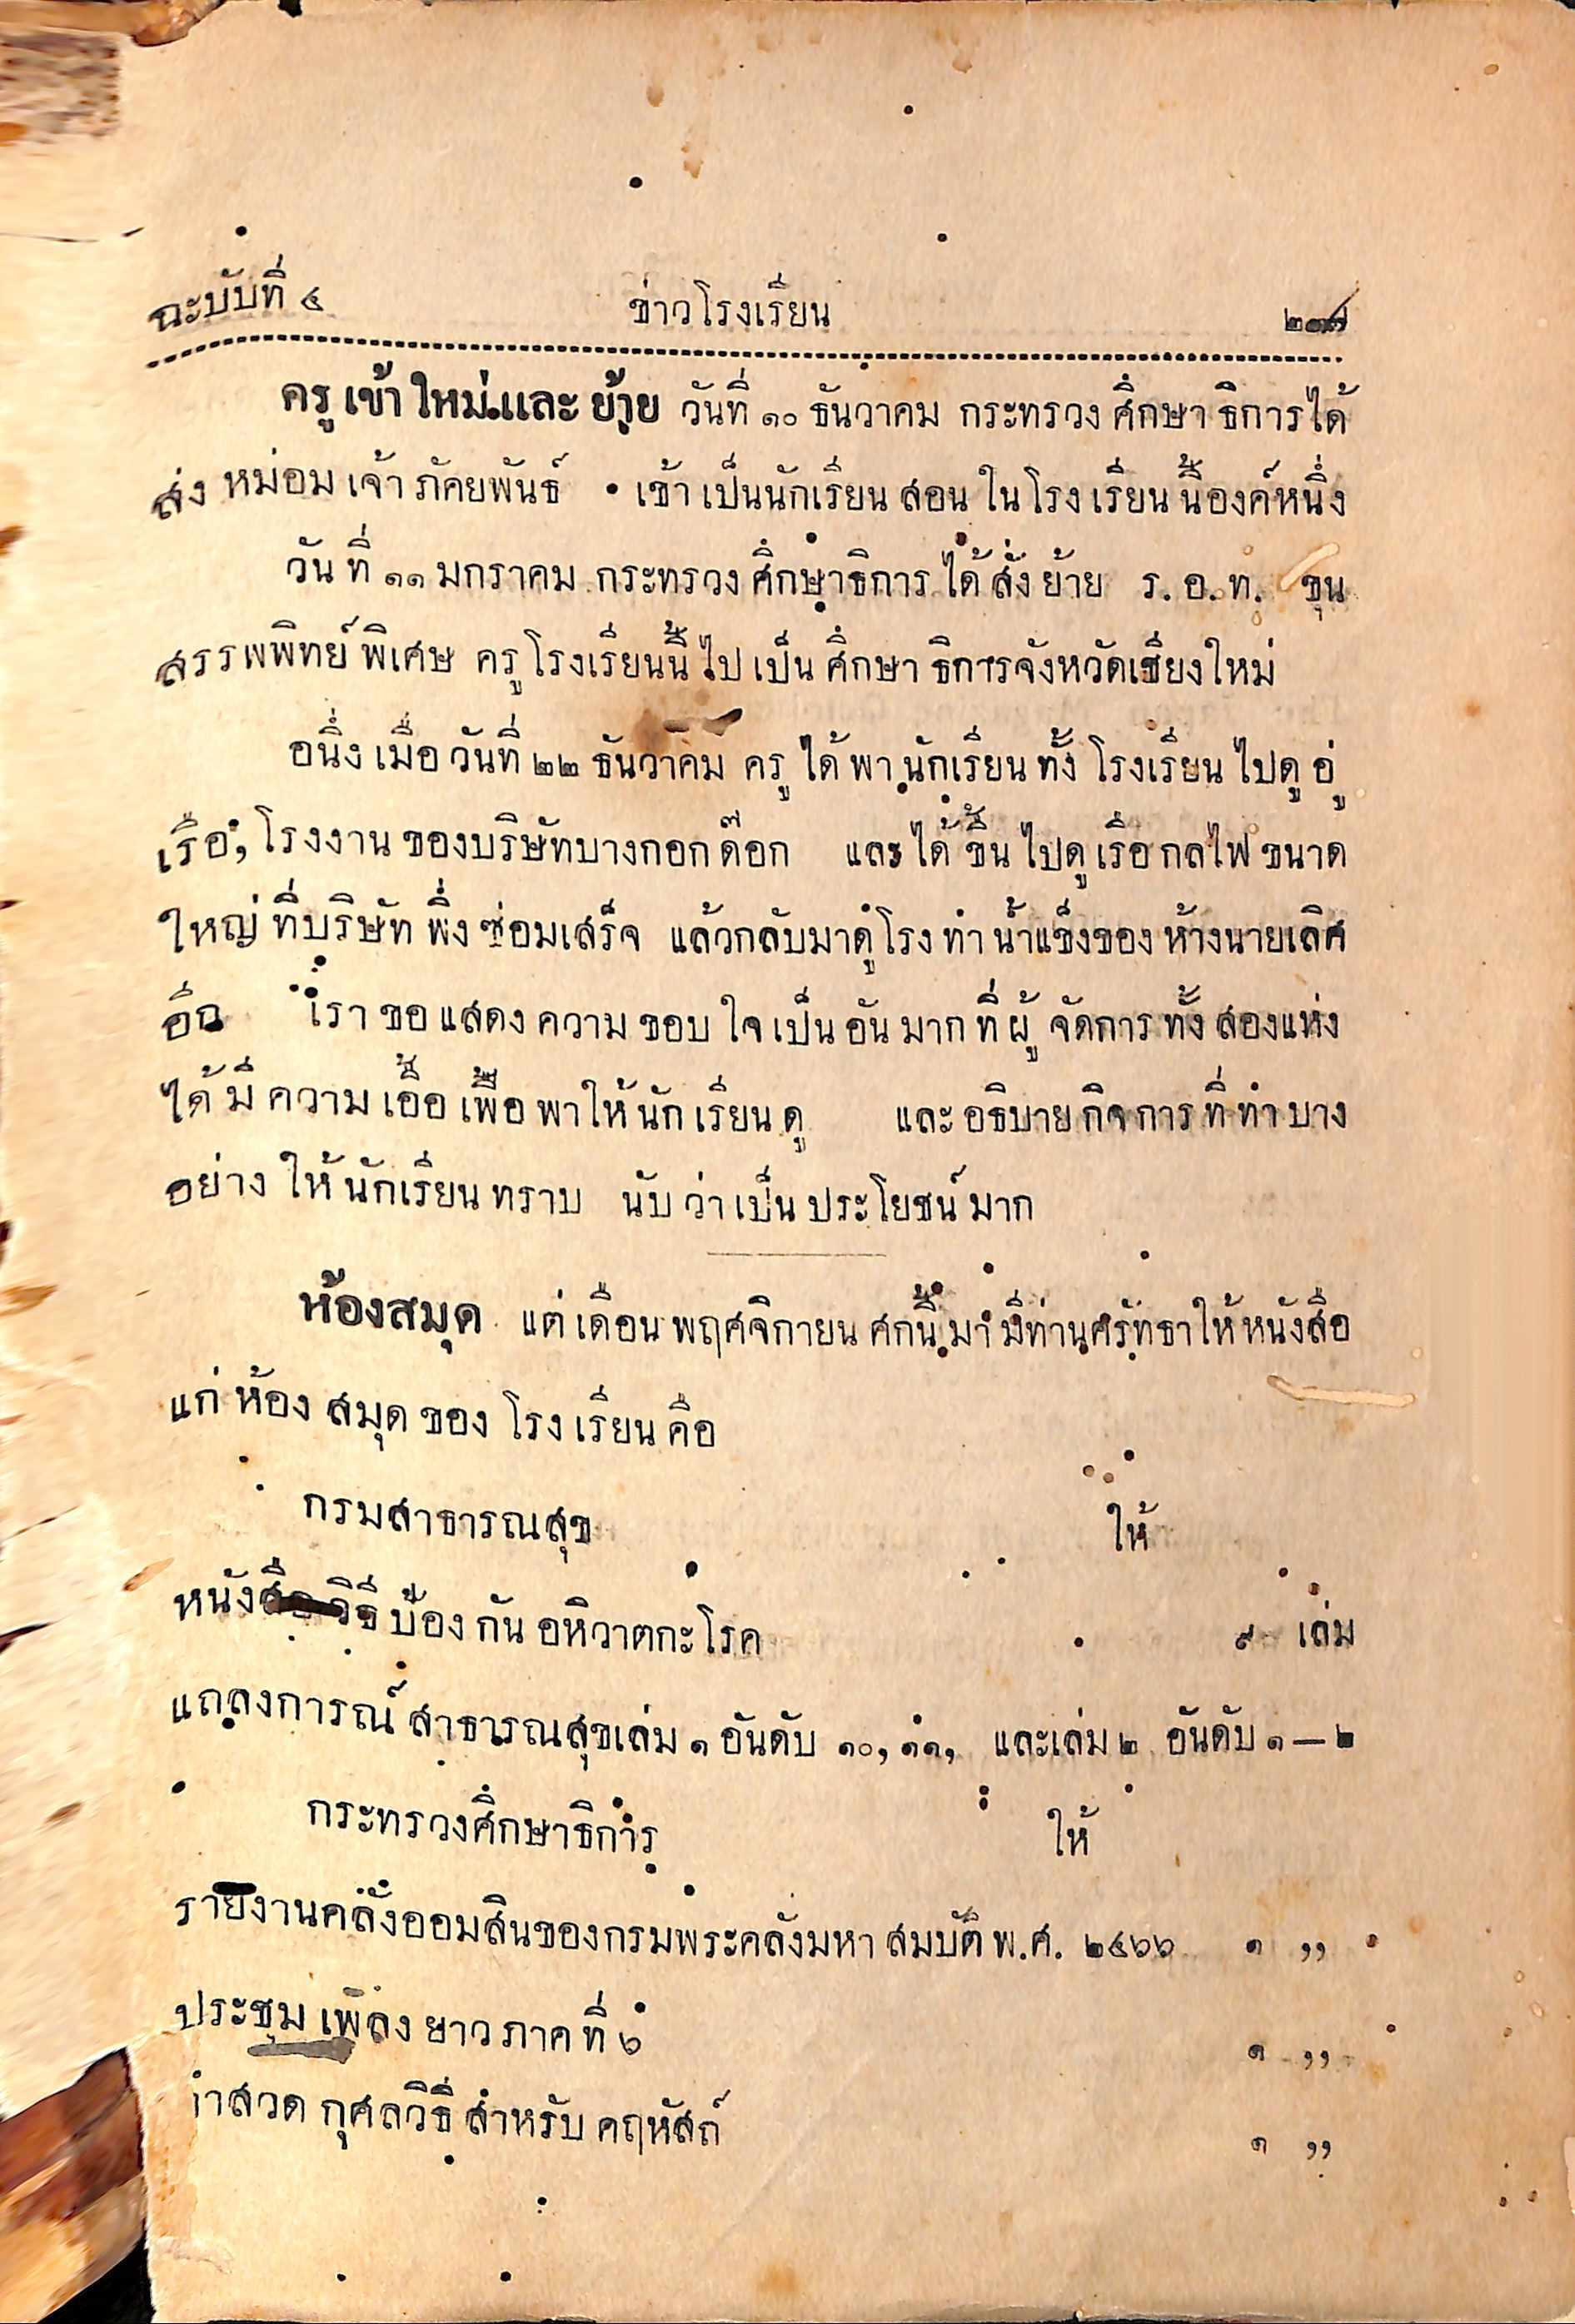 ฉะบับที่ ๔ ข่าวโรงเรียน
ครูเข้าใหม่และย้าย วันที่ ๑๐ ธันวาคม กระทรวงศึกษาธิการได้
ส่ง หม่อมเจ้าภัคยพันธ์ เข้าเป็นนักเรียนสอนในโรงเรียนนี้องค์หนึ่ง
วันที่ ๑๑ มกราคม กระทรวงศึกษาธิการได้สั่งย้าย ร.อ.ท. ขุน
สรรพพิทย์พิเศษ ครูโรงเรียนนี้ไปเป็นศึกษาธิการจังหวัดเชียงใหม่
อนึ่งเมื่อวันที่ ๒๒ ธันวาคม ครูได้พานักเรียนทั้งโรงเรียนไปดูอู่
เรือ, โรงงานของบริษัทบางกอกด๊อก และได้ขึ้นไปดูเรือกลไฟขนาด
ใหญ่ที่บริษัทพึ่งซ่อมเสร็จ แล้วกลับมาดูโรงทำน้ำแข็งของห้างนายเลิศ
อีก เราขอแสดงความขอบใจเป็นอันมากที่ผู้จัดการทั้งสองแห่ง
ได้มีความเอื้อเฟื้อพาให้นักเรียนดู และอธิบายกิจการที่ทำบาง
อย่างให้นักเรียนทราบ นับว่าเป็นประโยชน์มาก
ห้องสมุด แต่เดือนพฤศจิกายน ศกนี้มา มีท่านศรัทธาให้หนังสือ
แก่ห้องสมุดของโรงเรียนคือ
กรมสาธารณสุข ให้
หนังสือวิธีป้องกันอหิวาตกะโรค ๙ เล่ม
แถลงการณ์สาธารณสุขเล่ม ๑ อันดับ ๑๐, ๑๑, และเล่ม ๒ อันดับ ๑—๒
กระทรวงศึกษาธิการ ให้
รายงานคลังออมสินของกรมพระคลังมหาสมบัติ พ.ศ. ๒๔๖๖ ๑ ,,
ประชุมเพลงยาวภาคที่ ๖ ๑ ,,
กุศลวิธีสำหรับคฤหัสถ์ ๑ ,,